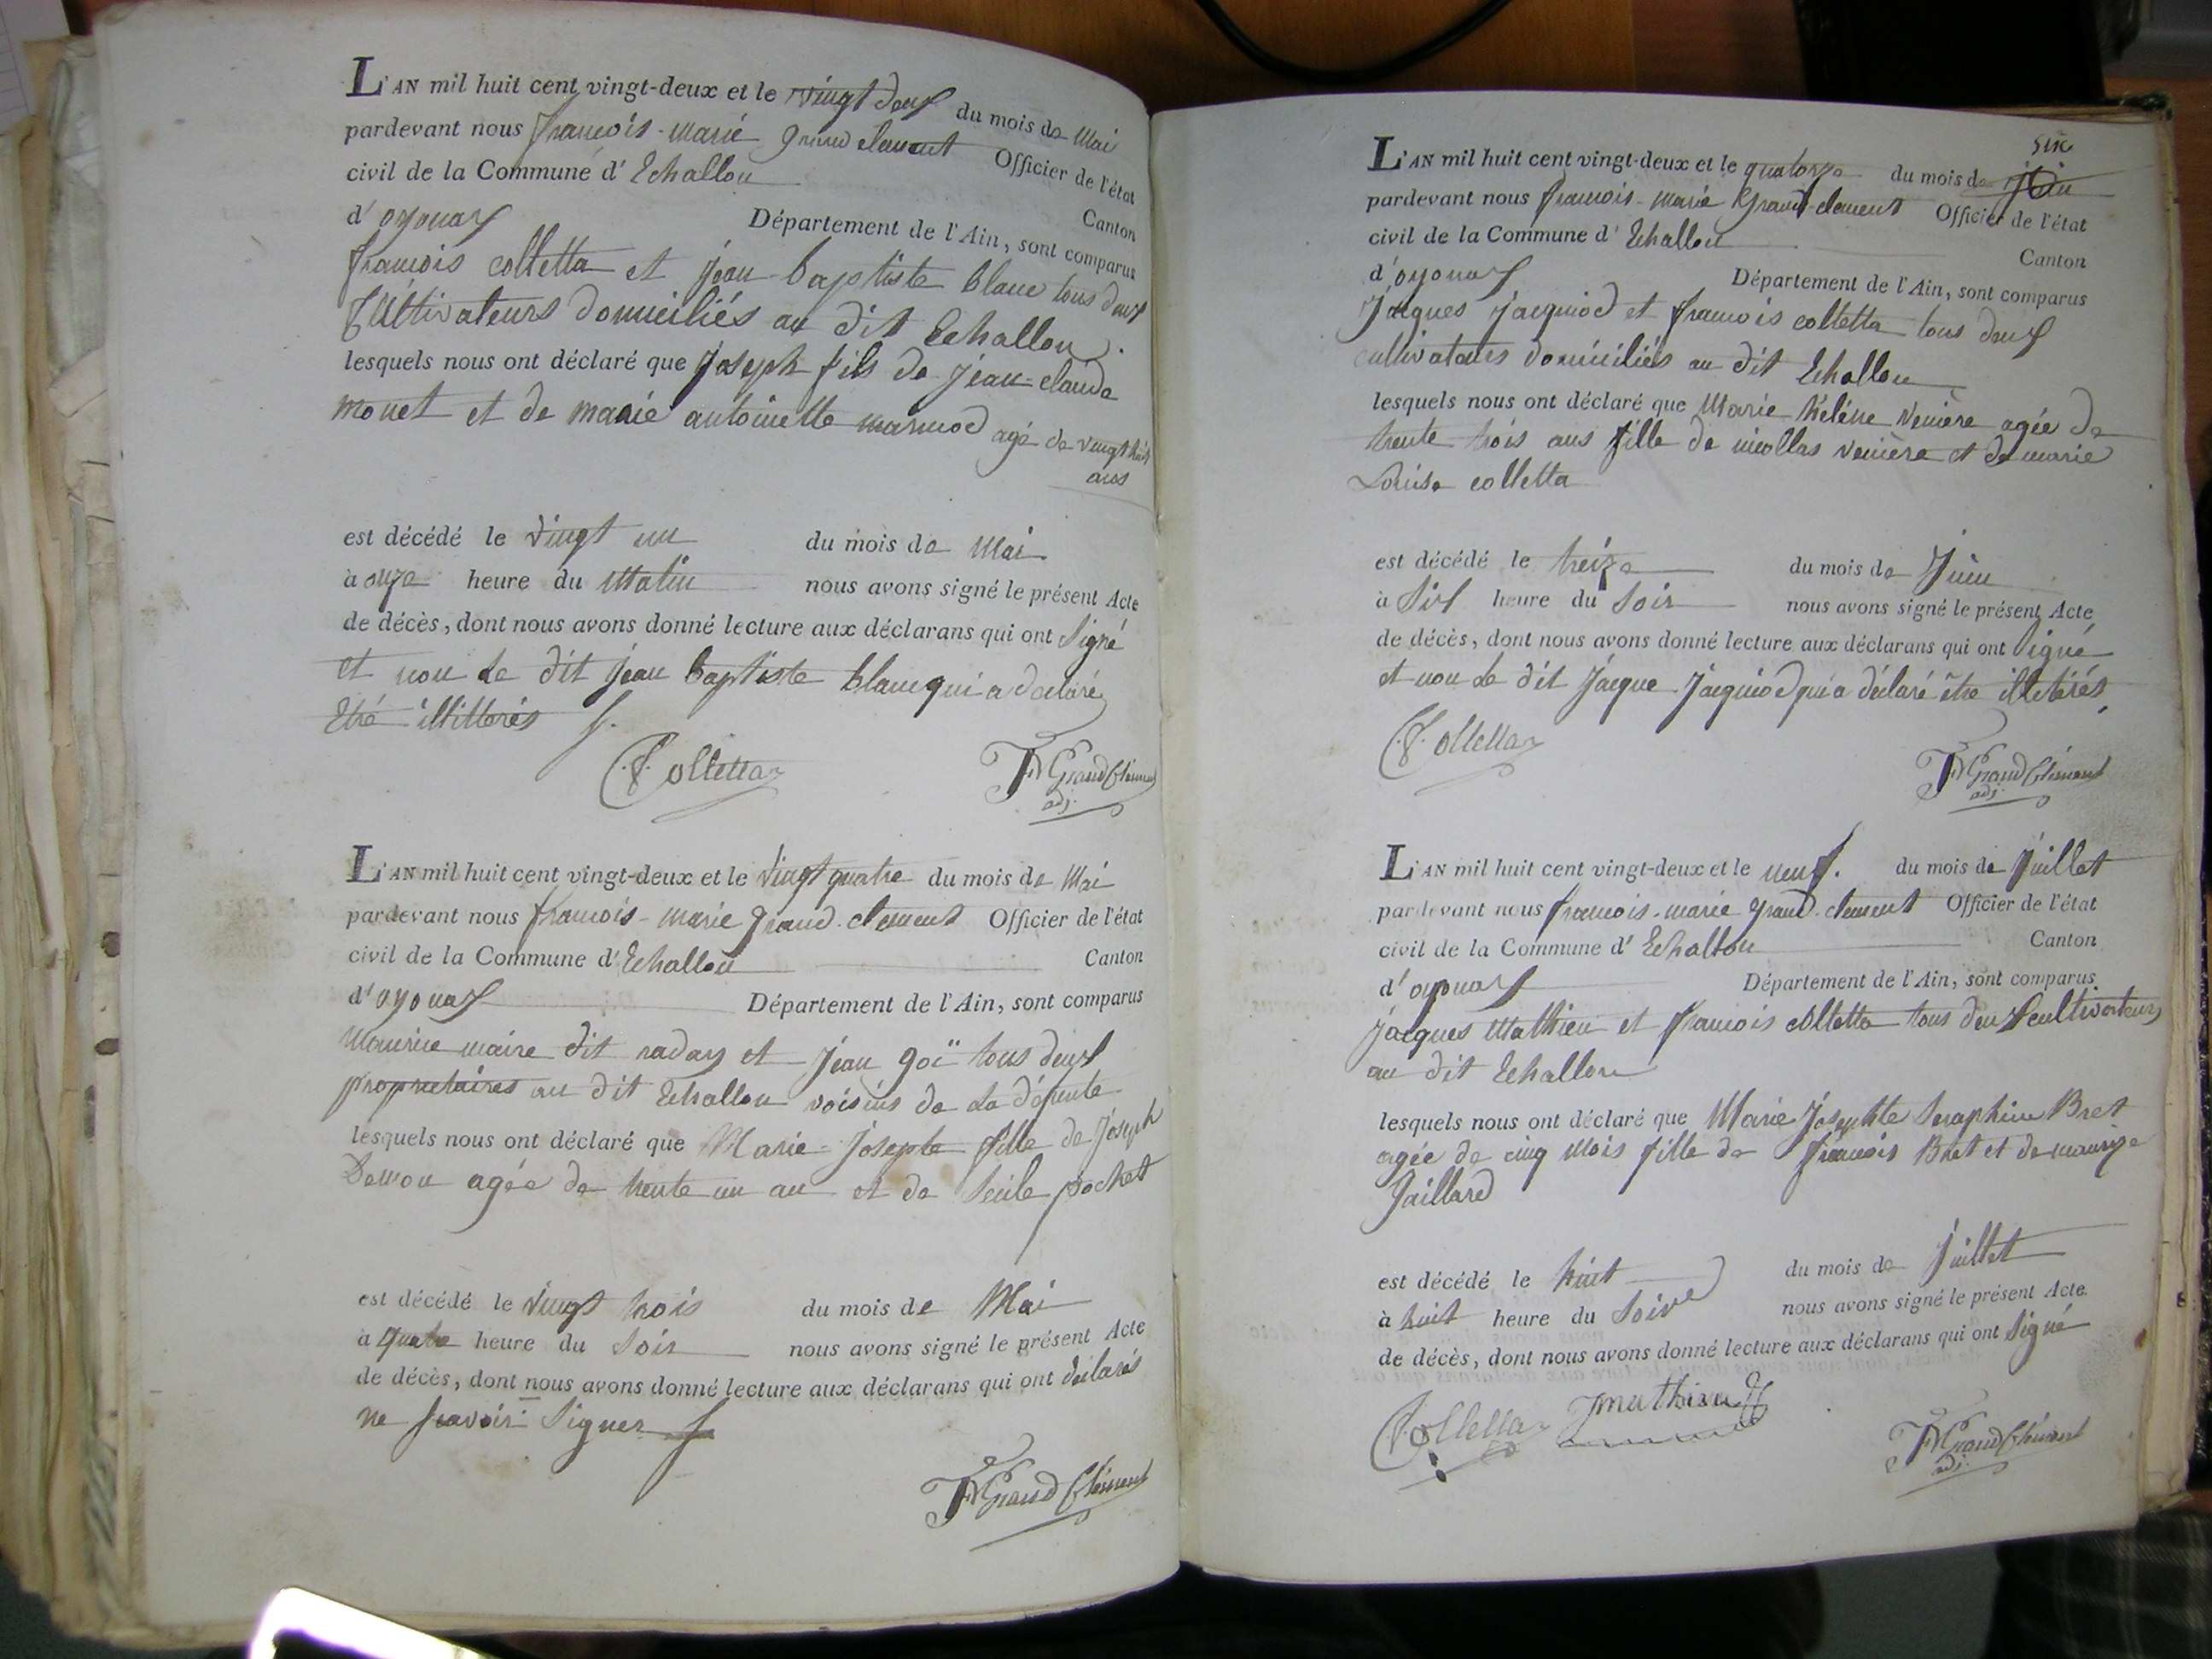 L'AN mil huit cent vingt-deux et le vingt deux du mois de Mai
pardevant nous françois-marie grand clement Officier de l'état
civil de la Commune d'Echallon Canton
d'oyonax Département de l'Ain, sont comparus
françois colletta et jean-baptiste blanc tous deux
Cultivateurs domiciliés au dit Echallon.
lesquels nous ont déclaré que joseph fils de jean-claude
monet et de marie antoinette marmod agé de vingt huit
ans
est décédé le vingt un du mois de Mai
à onze heure du Matin nous avons signé le présent Acte
de décès, dont nous avons donné lecture aux déclarans qui ont Signé
et non le dit jean baptiste blanc qui a declaré
Etré illitterés
Colletta FMGrandClément
adj.
L'AN mil huit cent vingt-deux et le vingt quatre du mois de Mai
pardevant nous françois-marie grand-clement Officier de l'état
civil de la Commune d'Echallon Canton
d'oyonax Département de l'Ain, sont comparus
Maurice maire dit raday et jean goï tous deux
proprietaires au dit Echallon voisins de la défunte
lesquels nous ont déclaré que Marie-josephte fille de joseph
agée de trente un an et de pochet
est décédé le vingt trois du mois de Mai
à quatre heure du Soir nous avons signé le présent Acte
de décès, dont nous avons donné lecture aux déclarans qui ont déclarés
ne scavoir Signer
FMGrandClément
six
L'AN mil huit cent vingt-deux et le quatorze du mois de juin
pardevant nous françois-marie Grand-clement Officier de l'état
civil de la Commune d'Echallon Canton
d'oyonax Département de l'Ain, sont comparus
Jacques jacquiod et françois colletta tous deux
cultivateurs domiciliés au dit Echallon
lesquels nous ont déclaré que Marie Heléne Veniere agée de
trente trois ans fille de nicollas veniere et de marie
Louise colletta
est décédé le treize du mois de Juin
à Six heure du Soir nous avons signé le présent Acte
de décès, dont nous avons donné lecture aux déclarans qui ont Signé
et non le dit Jacque Jacquiod qui a déclaré être illetérés,
Colletta
FMGrandClément
adj.
L'AN mil huit cent vingt-deux et le neuf. du mois de Juillet
pardevant nous françois-marie grand-clement Officier de l'état
civil de la Commune d'Echallon Canton
d'oyonax Département de l'Ain, sont comparus
jacques Mathieu et françois colletta tous deux cultivateurs
au dit Echallon
lesquels nous ont déclaré que Marie Josephte Seraphine Bret
agée de cinq Mois fille de françois Bret et de
Gaillard
est décédé le huit du mois de Juillet
à huit heure du Soire nous avons signé le présent Acte
de décès, dont nous avons donné lecture aux déclarans qui ont Signé
Colletta Jmathieu
FMGrandClément
adj.